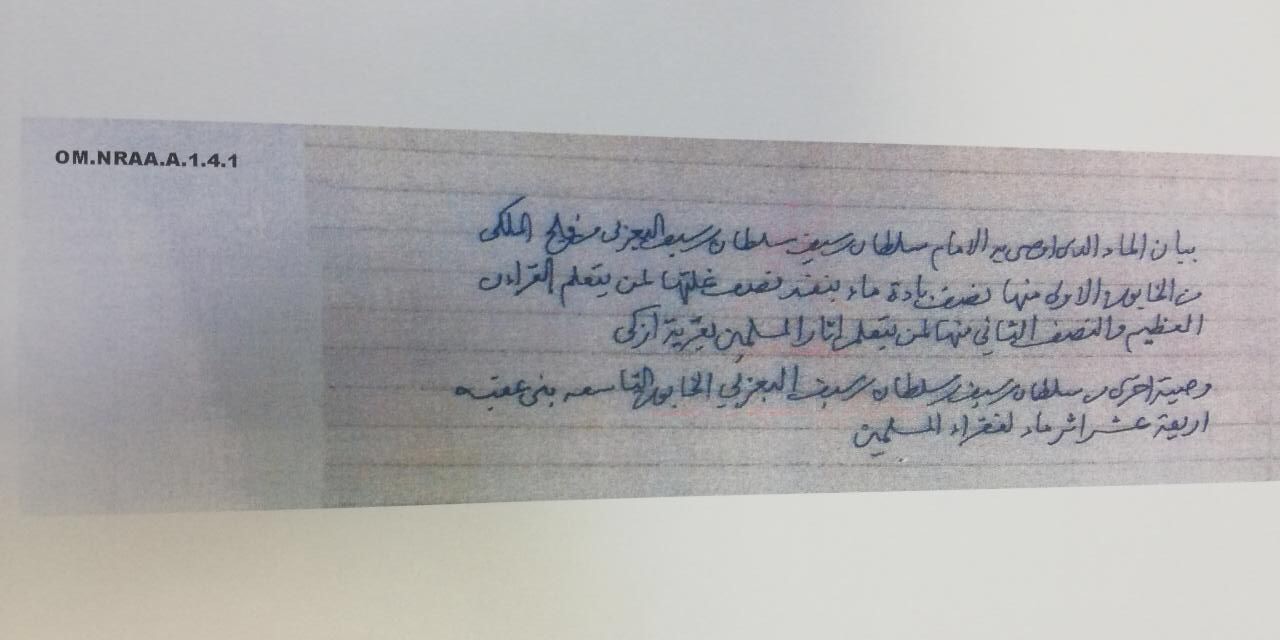 OM.NRAA.A.1.4.1
بيان الماء الذي اوصى به الامام سلطان بن سيف بن سلطان بن سيف اليعربي من فلج الملكي
من الخابورة الاولى منها نصف بادة ماء ينفذ نصف غلتها لمن يتعلم القراءن
العظيم والنصف الثاني منها لمن يتعلم اثار المسلمين بقرية ازكى
وصية اخرى من سلطان بن سيف بن سلطان بن سيف اليعربي الخابورة التاسعه بني
اربعة عشر اثر ماء لفقراء المسلمين